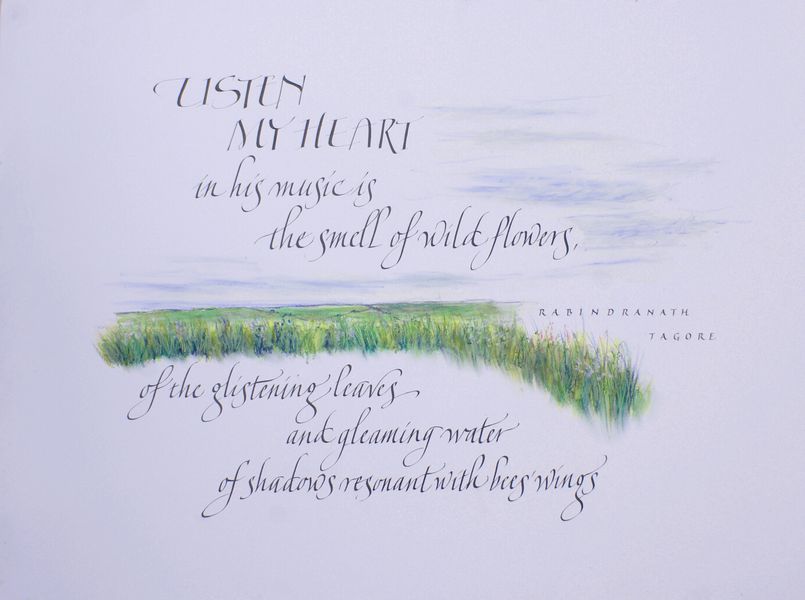 LISTEN
MY HEART
in his music is
the smell of wild flowers,
RABINDRANATH
TAGORE
of the glistening leaves
and gleaming water
of shadows resonant with bees' wings